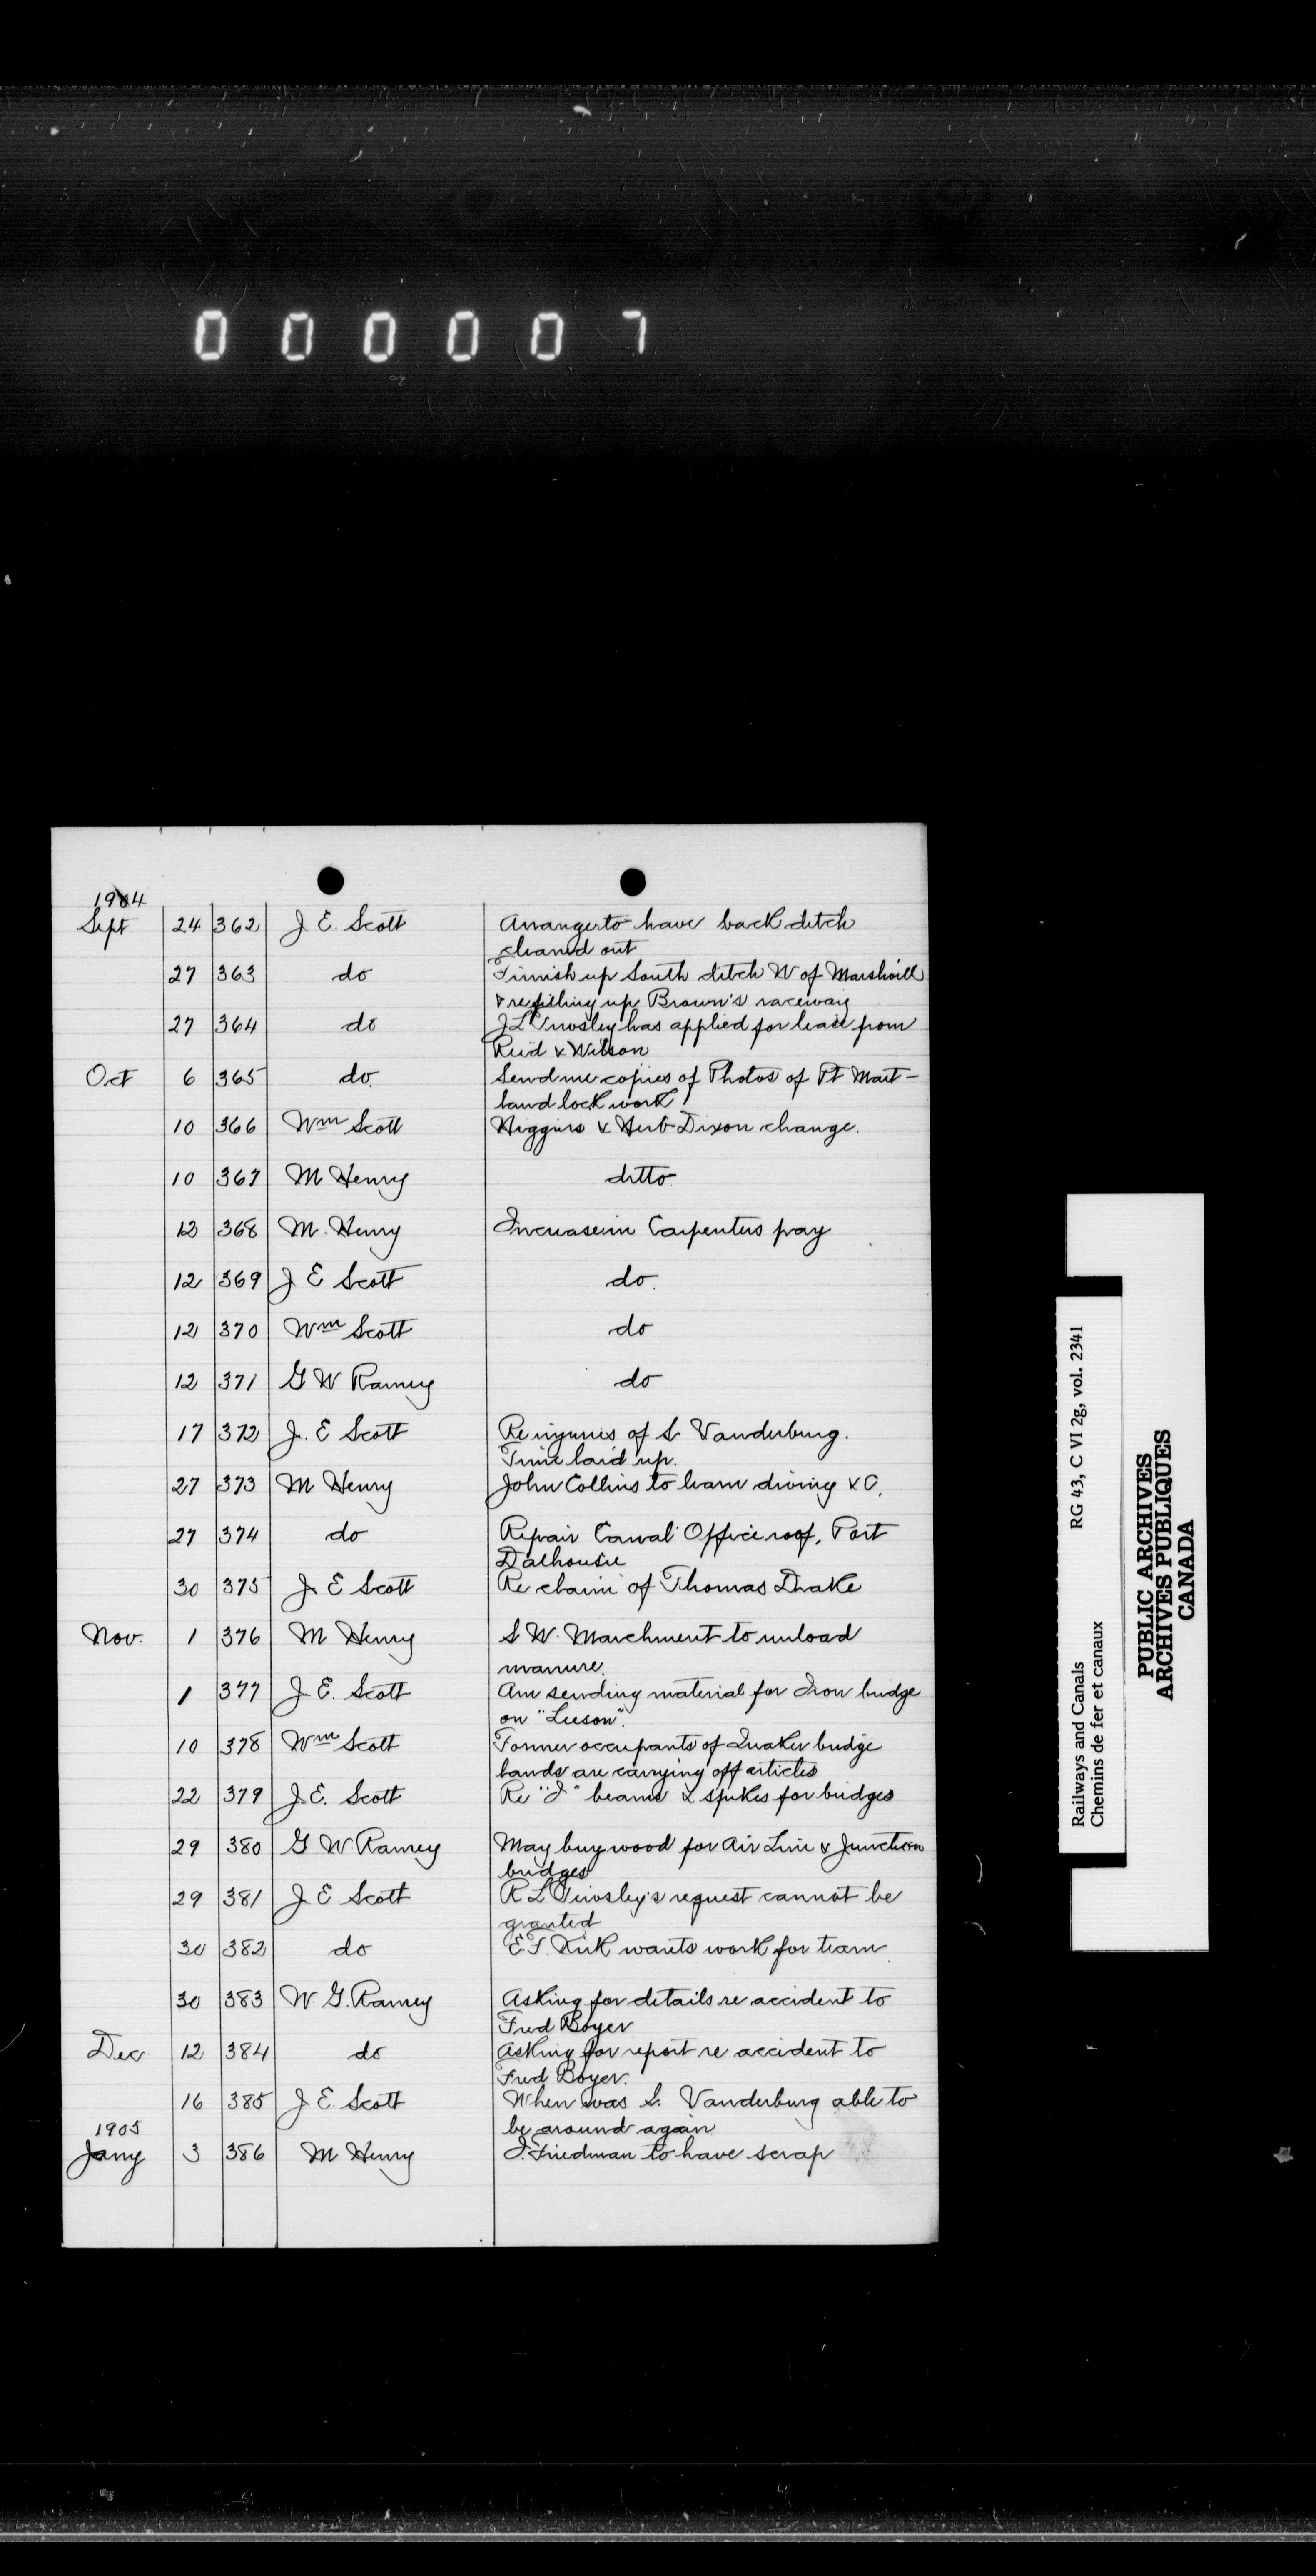 000007
1904
Sept 24 362 J E. Scott Arrange to have back ditch
cleaned out
27 363 do Finnish up South ditch W of Marshville
& refilling up Brown's raceway
27 364 do J L Tinsley has applied for lease from
Reid & Wilson
Oct 6 365 do. Send me copies of Photos of Pt Mait-
land lock work
10 366 Wm Scott Higgins & Herb Dixon change.
10 367 M Henry ditto
12 368 M. Henry Increase in Carpenters pay
12 369 J E Scott do.
12 370 Wm Scott do
12 371 G W Ramey do
17 372 J. E Scott Re injuries of S. Vanderburg.
Time laid up.
27 373 M Henry John Collins to learn diving &C.
27 374 do Repair Canal Office roof, Port
Dalhousie
30 375 J E Scott Re claim of Thomas Drake
Nov. 1 376 M Henry S W. Marchment to unload
manure.
1 377 J E. Scott Am sending material for Iron bridge
on "Leeson".
10 378 Wm Scott Former occupants of Quaker bridge
lands are carrying off articles
22 379 J. E. Scott Re "I" beams & spikes for bridges
29 380 G W Ramey May buy wood for Air Line & Junction
bridges
29 381 J E. Scott R L Tinsley's request cannot be
granted
30 382 do E.T. Kirk wants work for team
30 383 W. G. Ramey Asking for details re accident to
Fred Boyer
Dec 12 384 do Asking for report re accident to
Fred Boyer.
16 385 J E. Scott When was S. Vanderburg able to
be around again
1905
Jany 3 386 M Henry I. Friedman to have scrap
Railways and Canals RG 43, C VI 2g, vol. 2341
Chemins de fer et canaux
PUBLIC ARCHIVES
ARCHIVES PUBLIQUES
CANADA